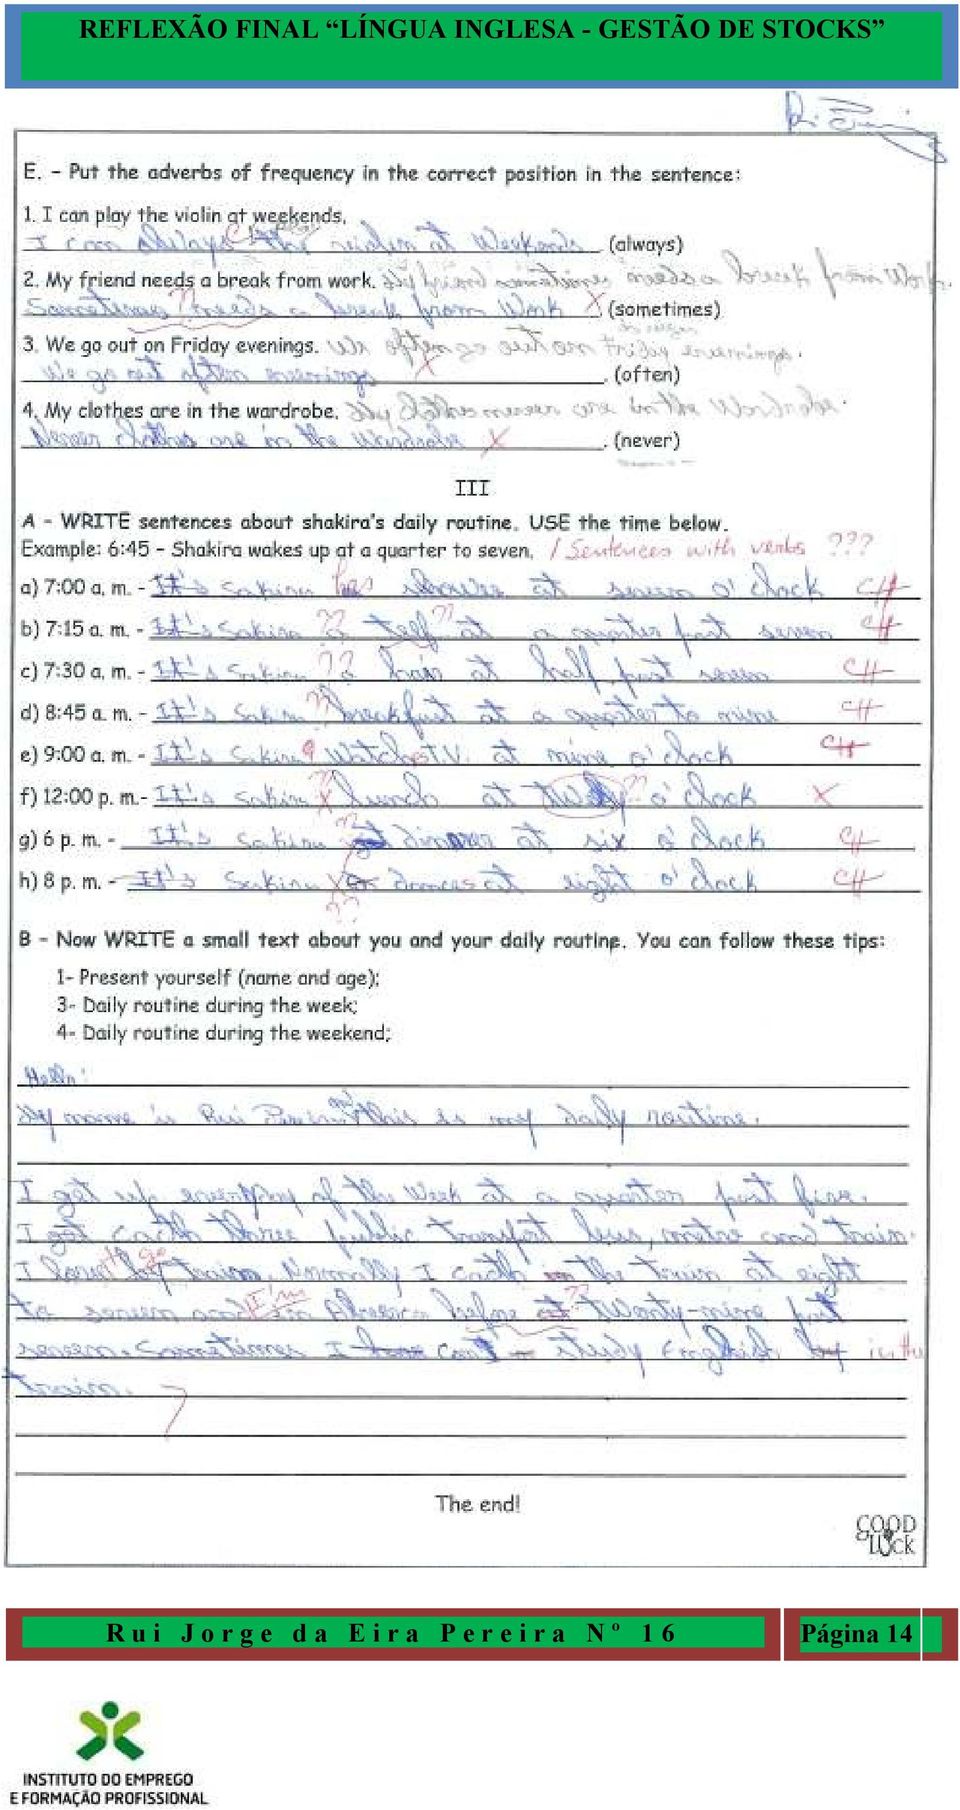 REFLEXÃO FINAL “LÍNGUA INGLESA - GESTÃO DE STOCKS”
E. - Put the adverbs of frequency in the correct position in the sentence:
1. I can play the violin at weekends.
I can always the at Weekends (always)
2. My friend needs a break from work. My friend sometimes needs a break from Work.
Sometimes ?? needs a break from Work X. (sometimes)
3. We go out on Friday evenings. We often go out on Friday evenings.
We go out often evenings X. (often)
4. My clothes are in the wardrobe. My clothes never are in the Wardrobe.
Never clothes are in the Wardrobe X. (never)
III
A - WRITE sentences about shakira's daily routine. USE the time below.
Example: 6:45 - Shakira wakes up at a quarter to seven. / Sentences with verbs ???
a) 7:00 a. m. - It's Sakira has shower at seven o' clock
b) 7:15 a. m. - It's Sakira ?? a ?? at a quarter past seven
c) 7:30 a. m. - It's Sakira ?? a hair at half past seven
d) 8:45 a. m. - It's Sakira ?? breakfast at a quarter to nine
e) 9:00 a. m. - It's Sakira watches T.V. at nine o' clock
f) 12:00 p. m.- It's Sakira ?? X lunch at ?? o' clock X
g) 6 p. m. - It's Sakira ?? dinner at six o' clock
h) 8 p. m. - It's Sakira X dances at eight o' clock
??
B - Now WRITE a small text about you and your daily routine. You can follow these tips:
1- Present yourself (name and age);
3- Daily routine during the week;
4- Daily routine during the weekend;
Hello!
My name is Rui Pereira and this is my daily routine.
I get up every day of the Week at a quarter past five.
I get three public transport bus, metro and train.
I go by train. Normally I in the train at eight
to seven and I'm in before at ?? twenty-nine past
seven. Sometimes I study English by in the
train.
The end!
GOOD
LUCK
Rui Jorge da Eira Pereira Nº 16
Página 14
INSTITUTO DO EMPREGO
E FORMAÇÃO PROFISSIONAL